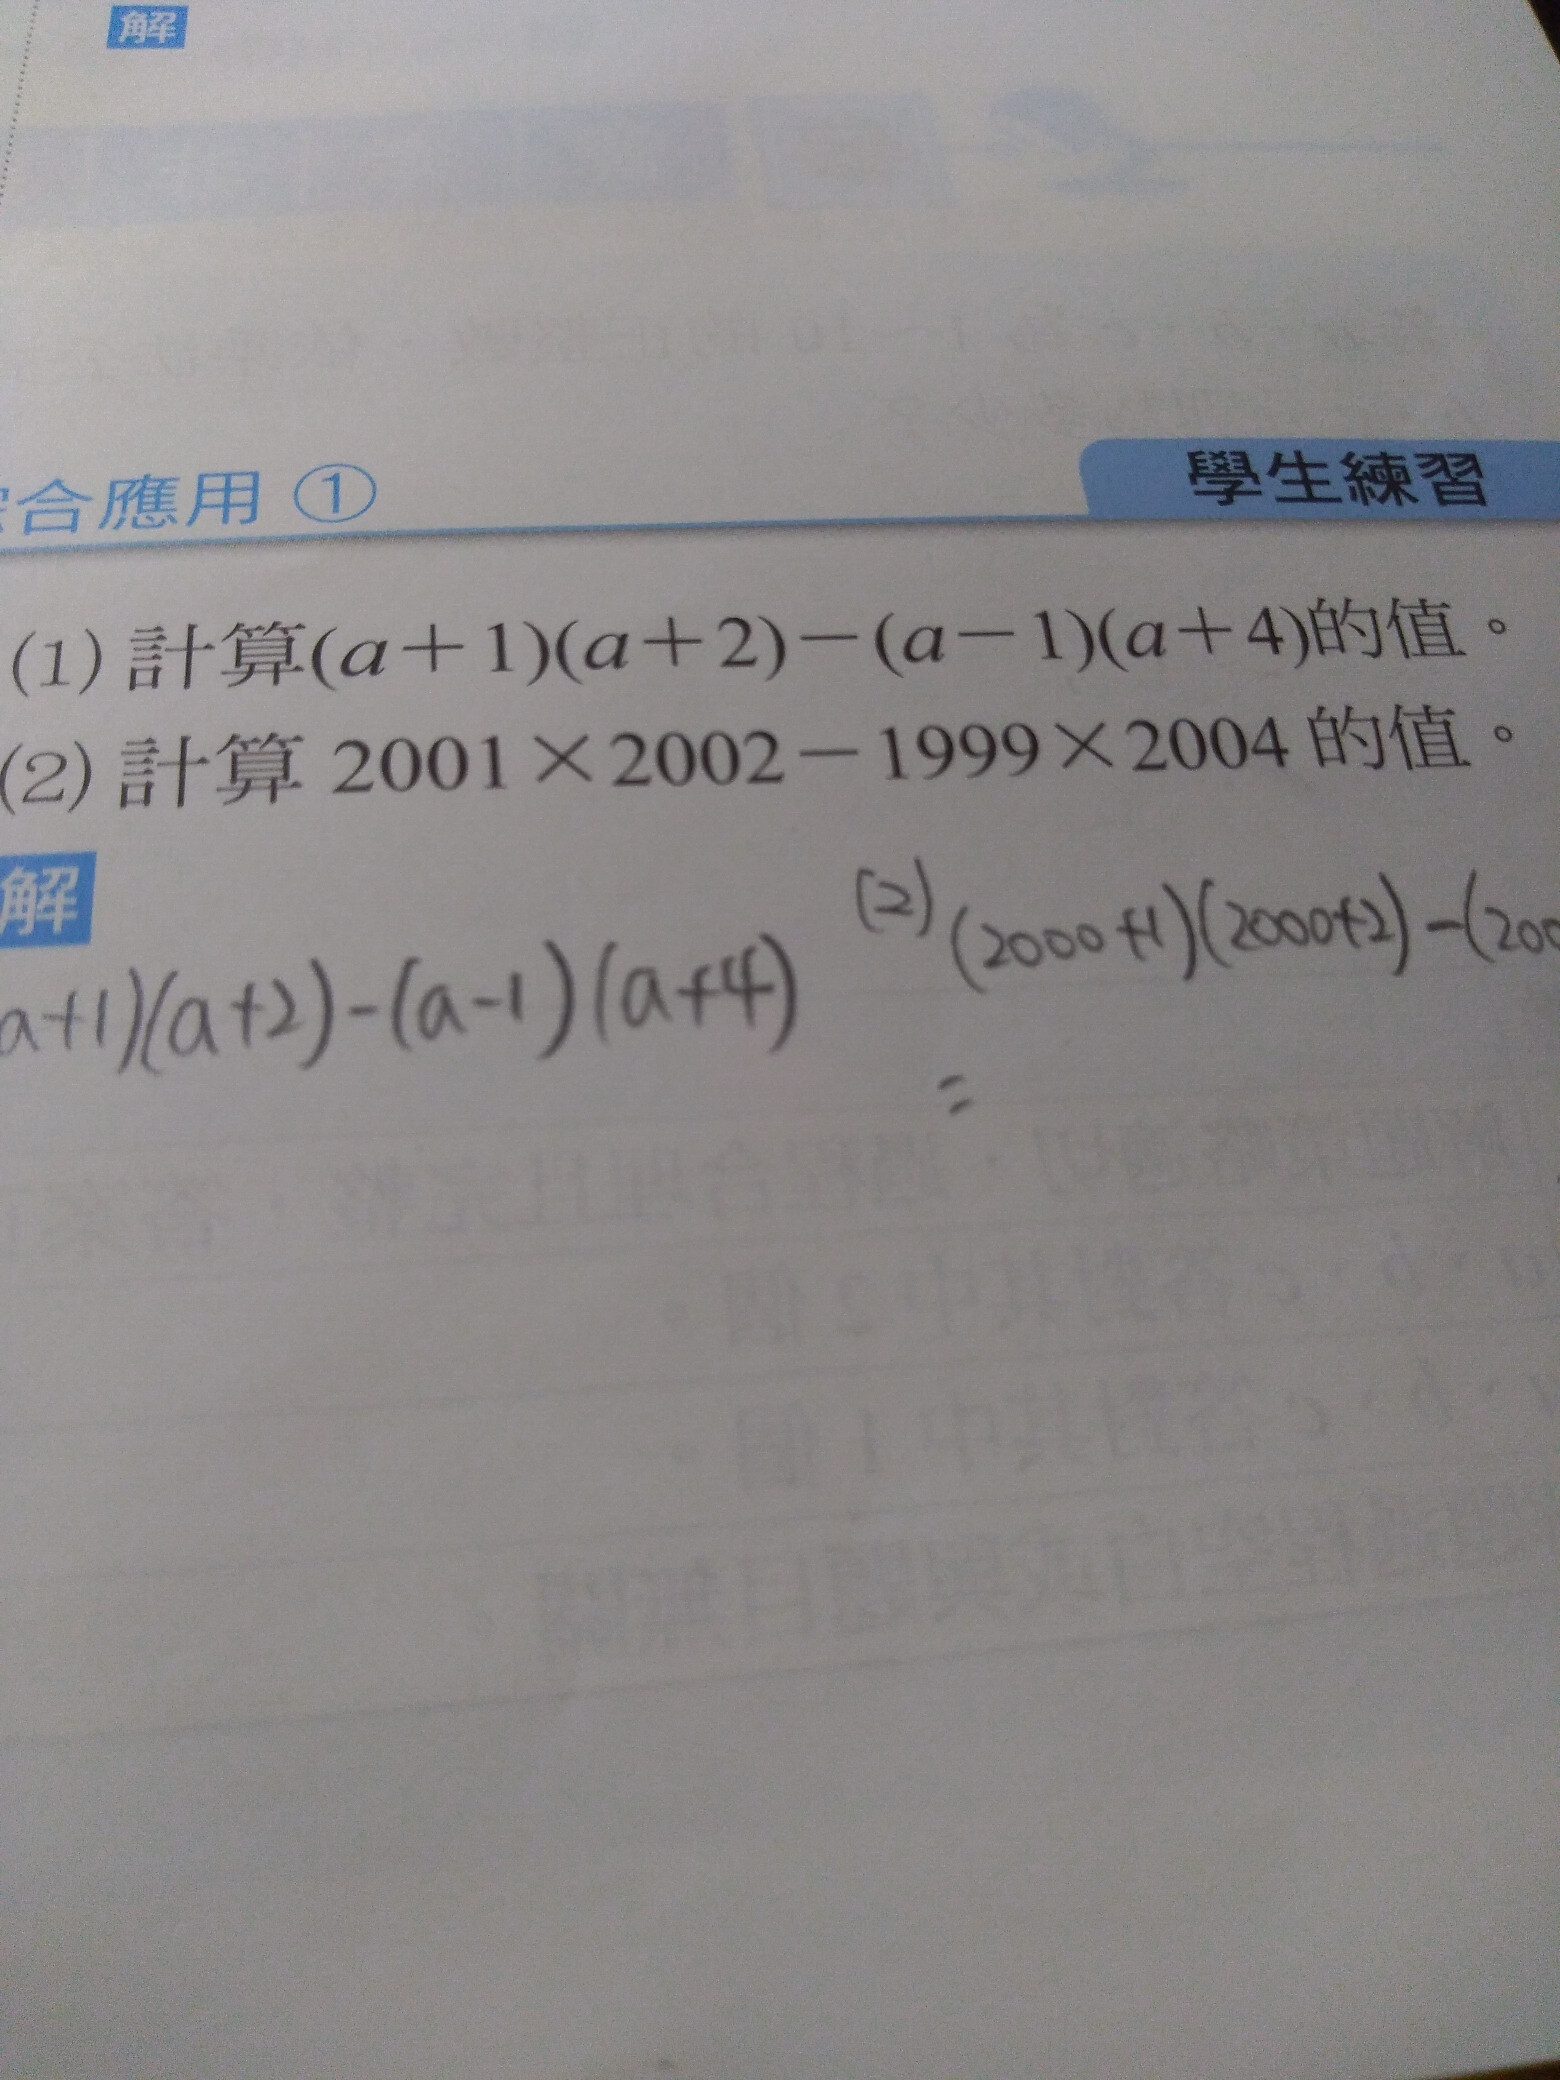 解
合應用 ①
學生練習
(1) 計算(a+1)(a+2)-(a-1)(a+4)的值。
(2) 計算 2001×2002-1999×2004 的值。
解
a+1)(a+2)-(a-1)(a+4)
(2) (2000+1)(2000+2)-(200
=